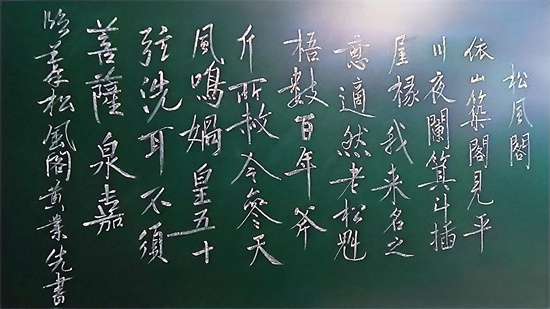 松風閣
依山築閣見平
川夜闌箕斗插
屋椽我来名之
意適然老松魁
梧數百年斧
斤所赦今參天
風鳴媧皇五十
弦洗耳不須
菩薩泉嘉
臨摹松風閣黃業先書